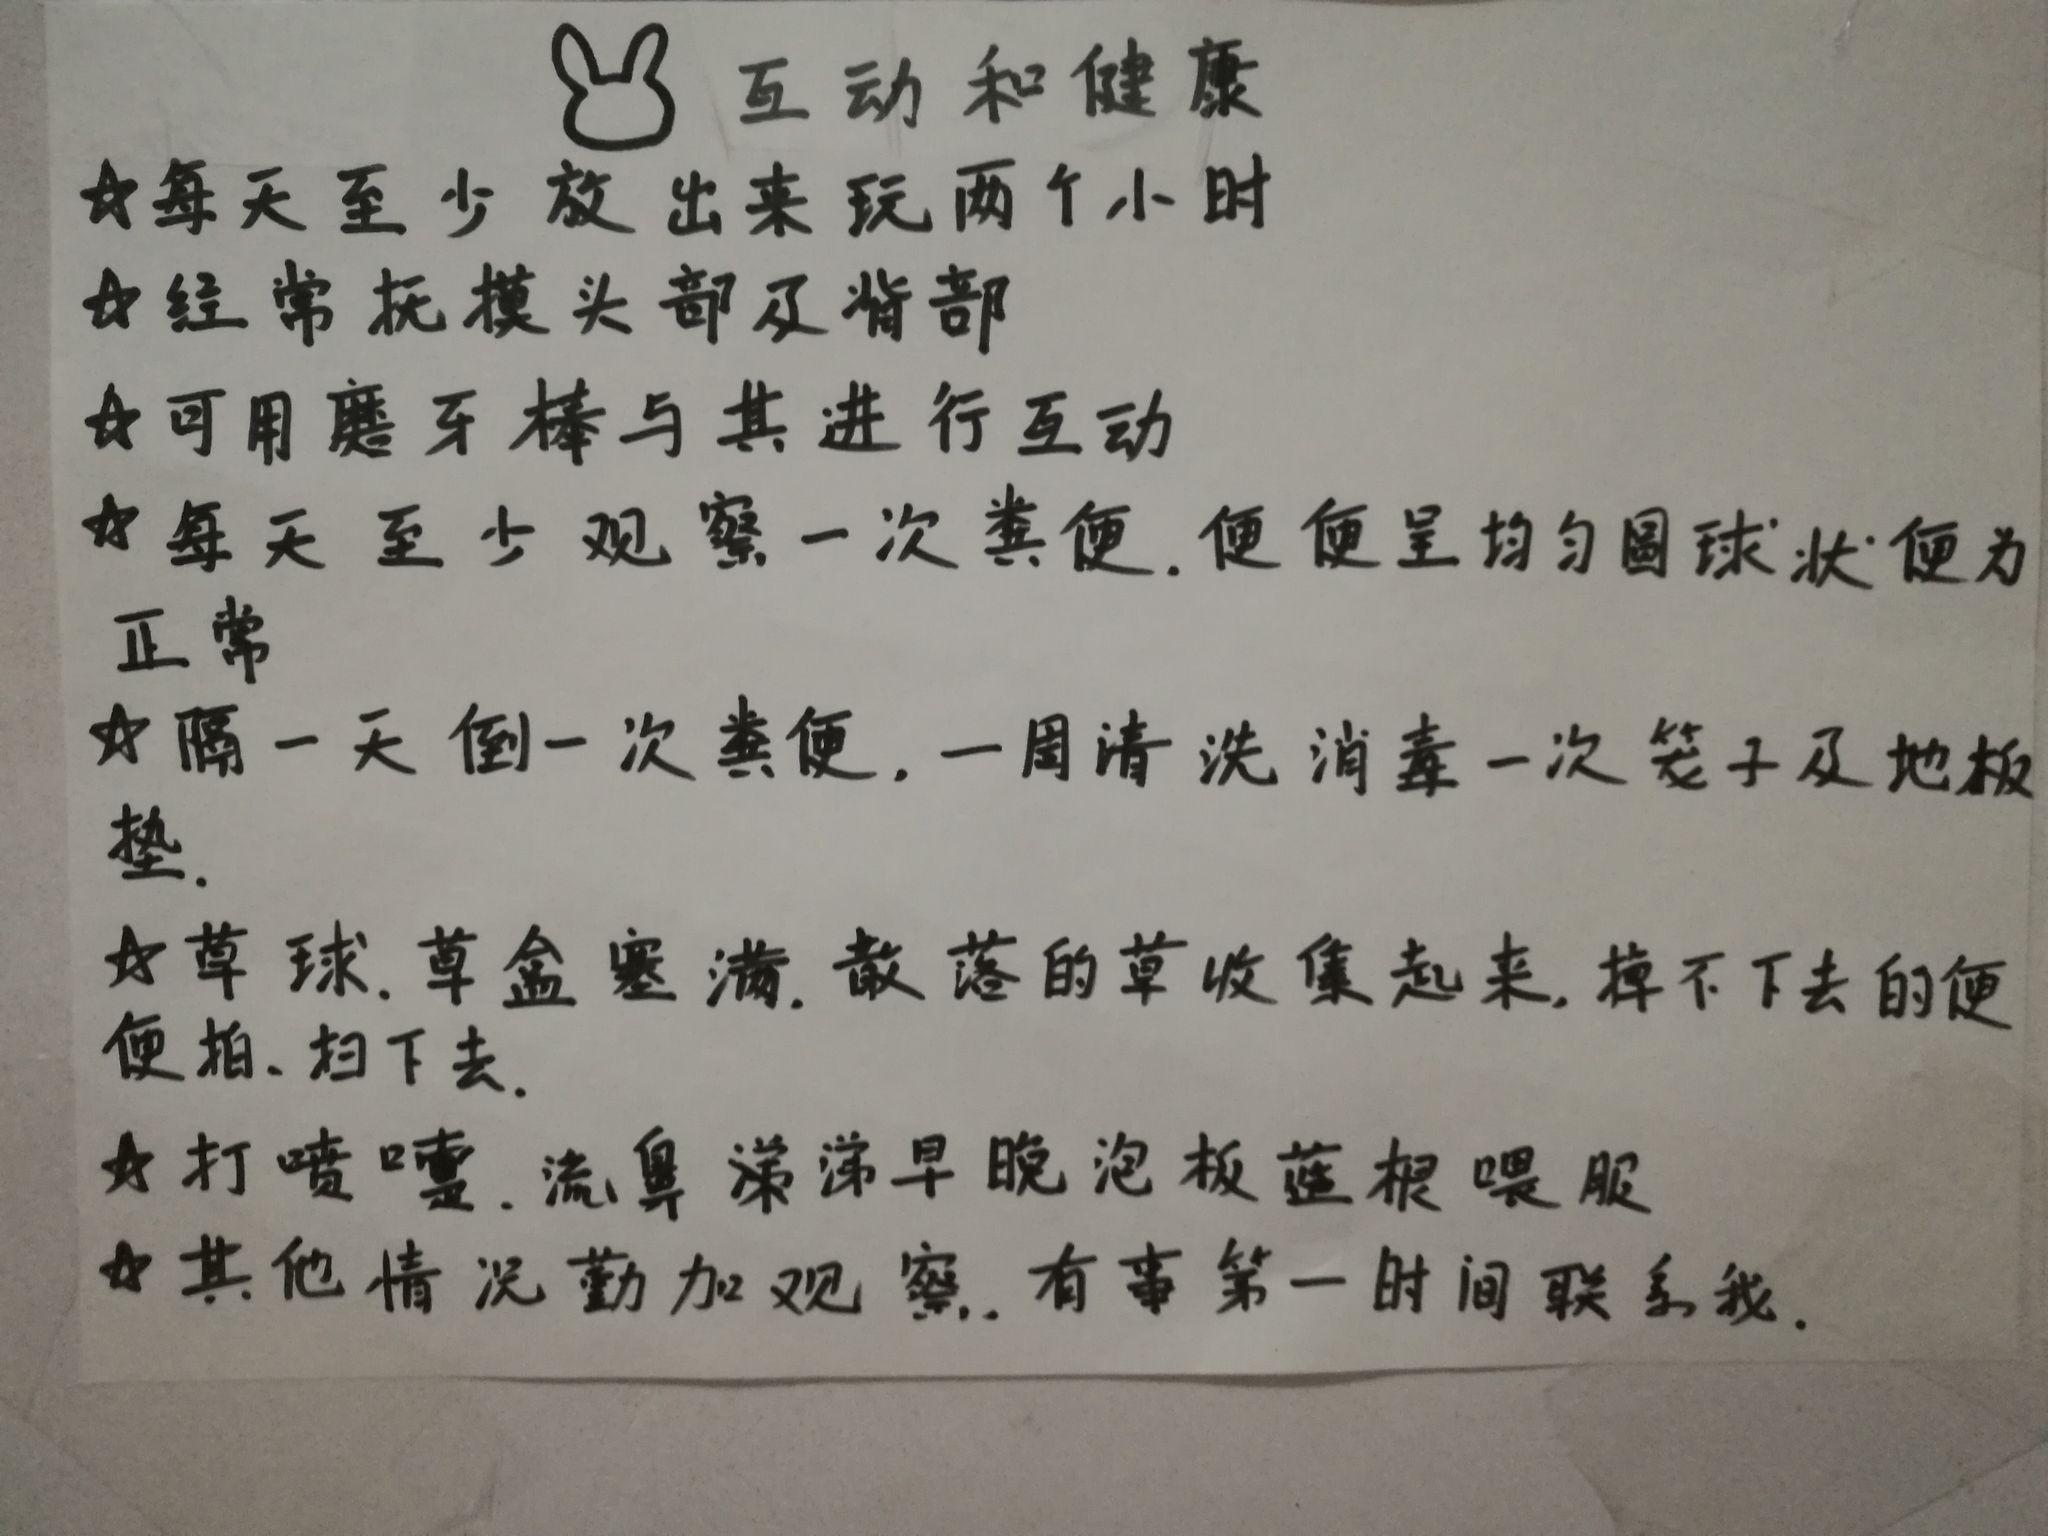 互动和健康
☆每天至少放出来玩两个小时
☆经常抚摸头部及背部
☆可用磨牙棒与其进行互动
☆每天至少观察一次粪便.便便呈均匀圆球状便为
正常
☆隔一天倒一次粪便.一周清洗消毒一次笼子及地板
垫.
☆草球.草盒塞满.散落的草收集起来.掉不下去的便
便拍、扫下去.
☆打喷嚏.流鼻涕涕早晚泡板蓝根喂服
☆其他情况勤加观察.有事第一时间联系我.